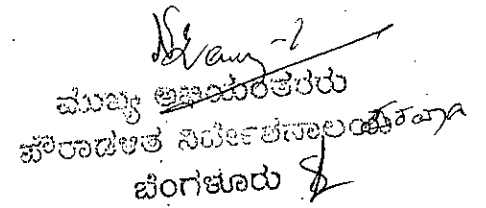 ಮುಖ್ಯ ಅಭಿಯಂತರರು
ಪೌರಾಡಳಿತ ನಿರ್ದೇಶನಾಲಯ
ಬೆಂಗಳೂರು